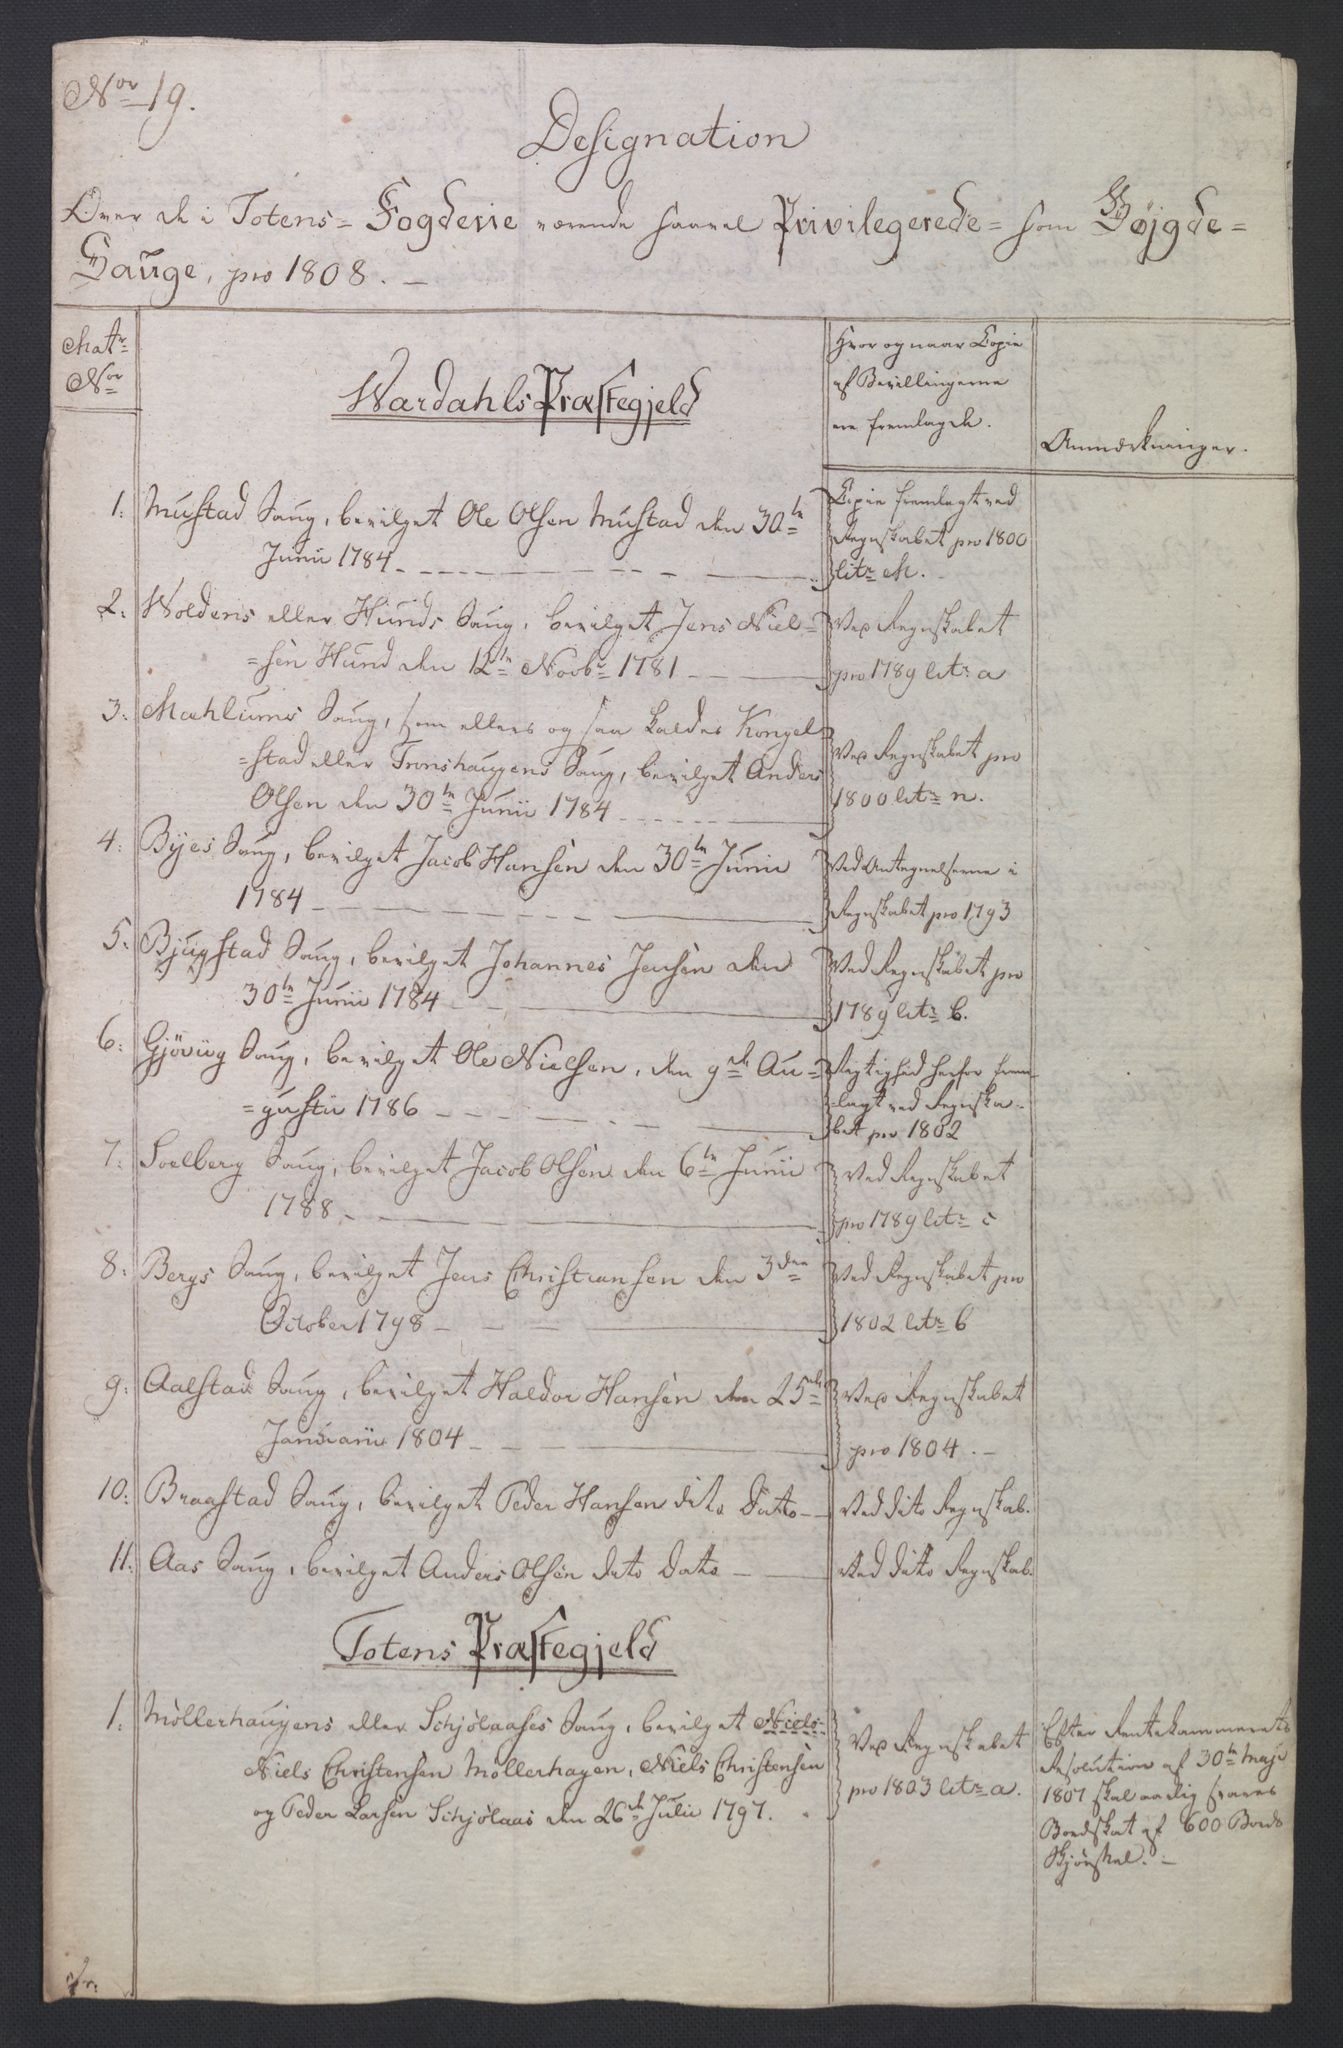 No 19.
Designation
Over de i Totens= Fogderie værende saavel Privilegerede= som Bøjgde=
Sauge, pro 1808. —
Matr
No
Wardahls Præstegjeld
Hvor og naar Copie
af Bevillingerne
ere fremlagde.
Anmærkninger.
1. Mustad Saug, bevilget Ole Olsen Mustad den 30te
Junii 1784
Copie fremlagt ved
Regnskabet pro 1800
litr M.
2. Woldens eller Hunds Saug, bevilget Jens Niel=
=sen Hund den 12te Novbr 1781
Ved Regnskabet
pro 1789 litr a
3. Mæhlums Saug, som ellers og saa kaldes Kongel
=stad eller Tronshaugens Saug, bevilget Anders
Olsen den 30te Junii 1784
Ved Regnskabet pro
1800 litr n.
4. Byes Saug, bevilget Jacob Hansen den 30te Junii
1784
Ved Antegnelserne i
Regnskabet pro 1793
5. Bjugstad Saug, bevilget Johannes Jensen den
30te Junii 1784
Ved Regnskabet pro
1789 litr b.
6. Gjøviig Saug, bevilget Ole Nielsen, den 9de Au=
=gustii 1786
Rigtighed herfor frem=
=lagt ved Regnska=
bet pro 1802
7. Soelberg Saug, bevilget Jacob Olsen den 6te Junii
1788
Ved Regnskabet
pro 1789 litr c
8. Bergs Saug, bevilget Jens Christiansen den 3den
October 1798
Ved Regnskabet pro
1802 litr b
9. Aalstad Saug, bevilget Haldor Hansen den 25de
Januarii 1804
Ved Regnskabet
pro 1804. —
10. Braastad Saug, bevilget Peder Hansen dito Dato
Ved dito Regnskab.
11. Aas Saug, bevilget Anders Olsen dito Dato
Ved dito Regnskab.
Totens Præstegjeld
1. Möllerhaugens eller Schjölaases Saug, bevilget Niels
Niels Christensen Möllerhagen, Niels Christensen
og Peder Larsen Schjölaas den 26de Julii 1797.
Ved Regnskabet
pro 1803 litr a.
Efter Rentekammerets
Resolution af 30te Maji
1807 skal aarlig svares
Bordskat af 600 Bords
Skjørsel. —